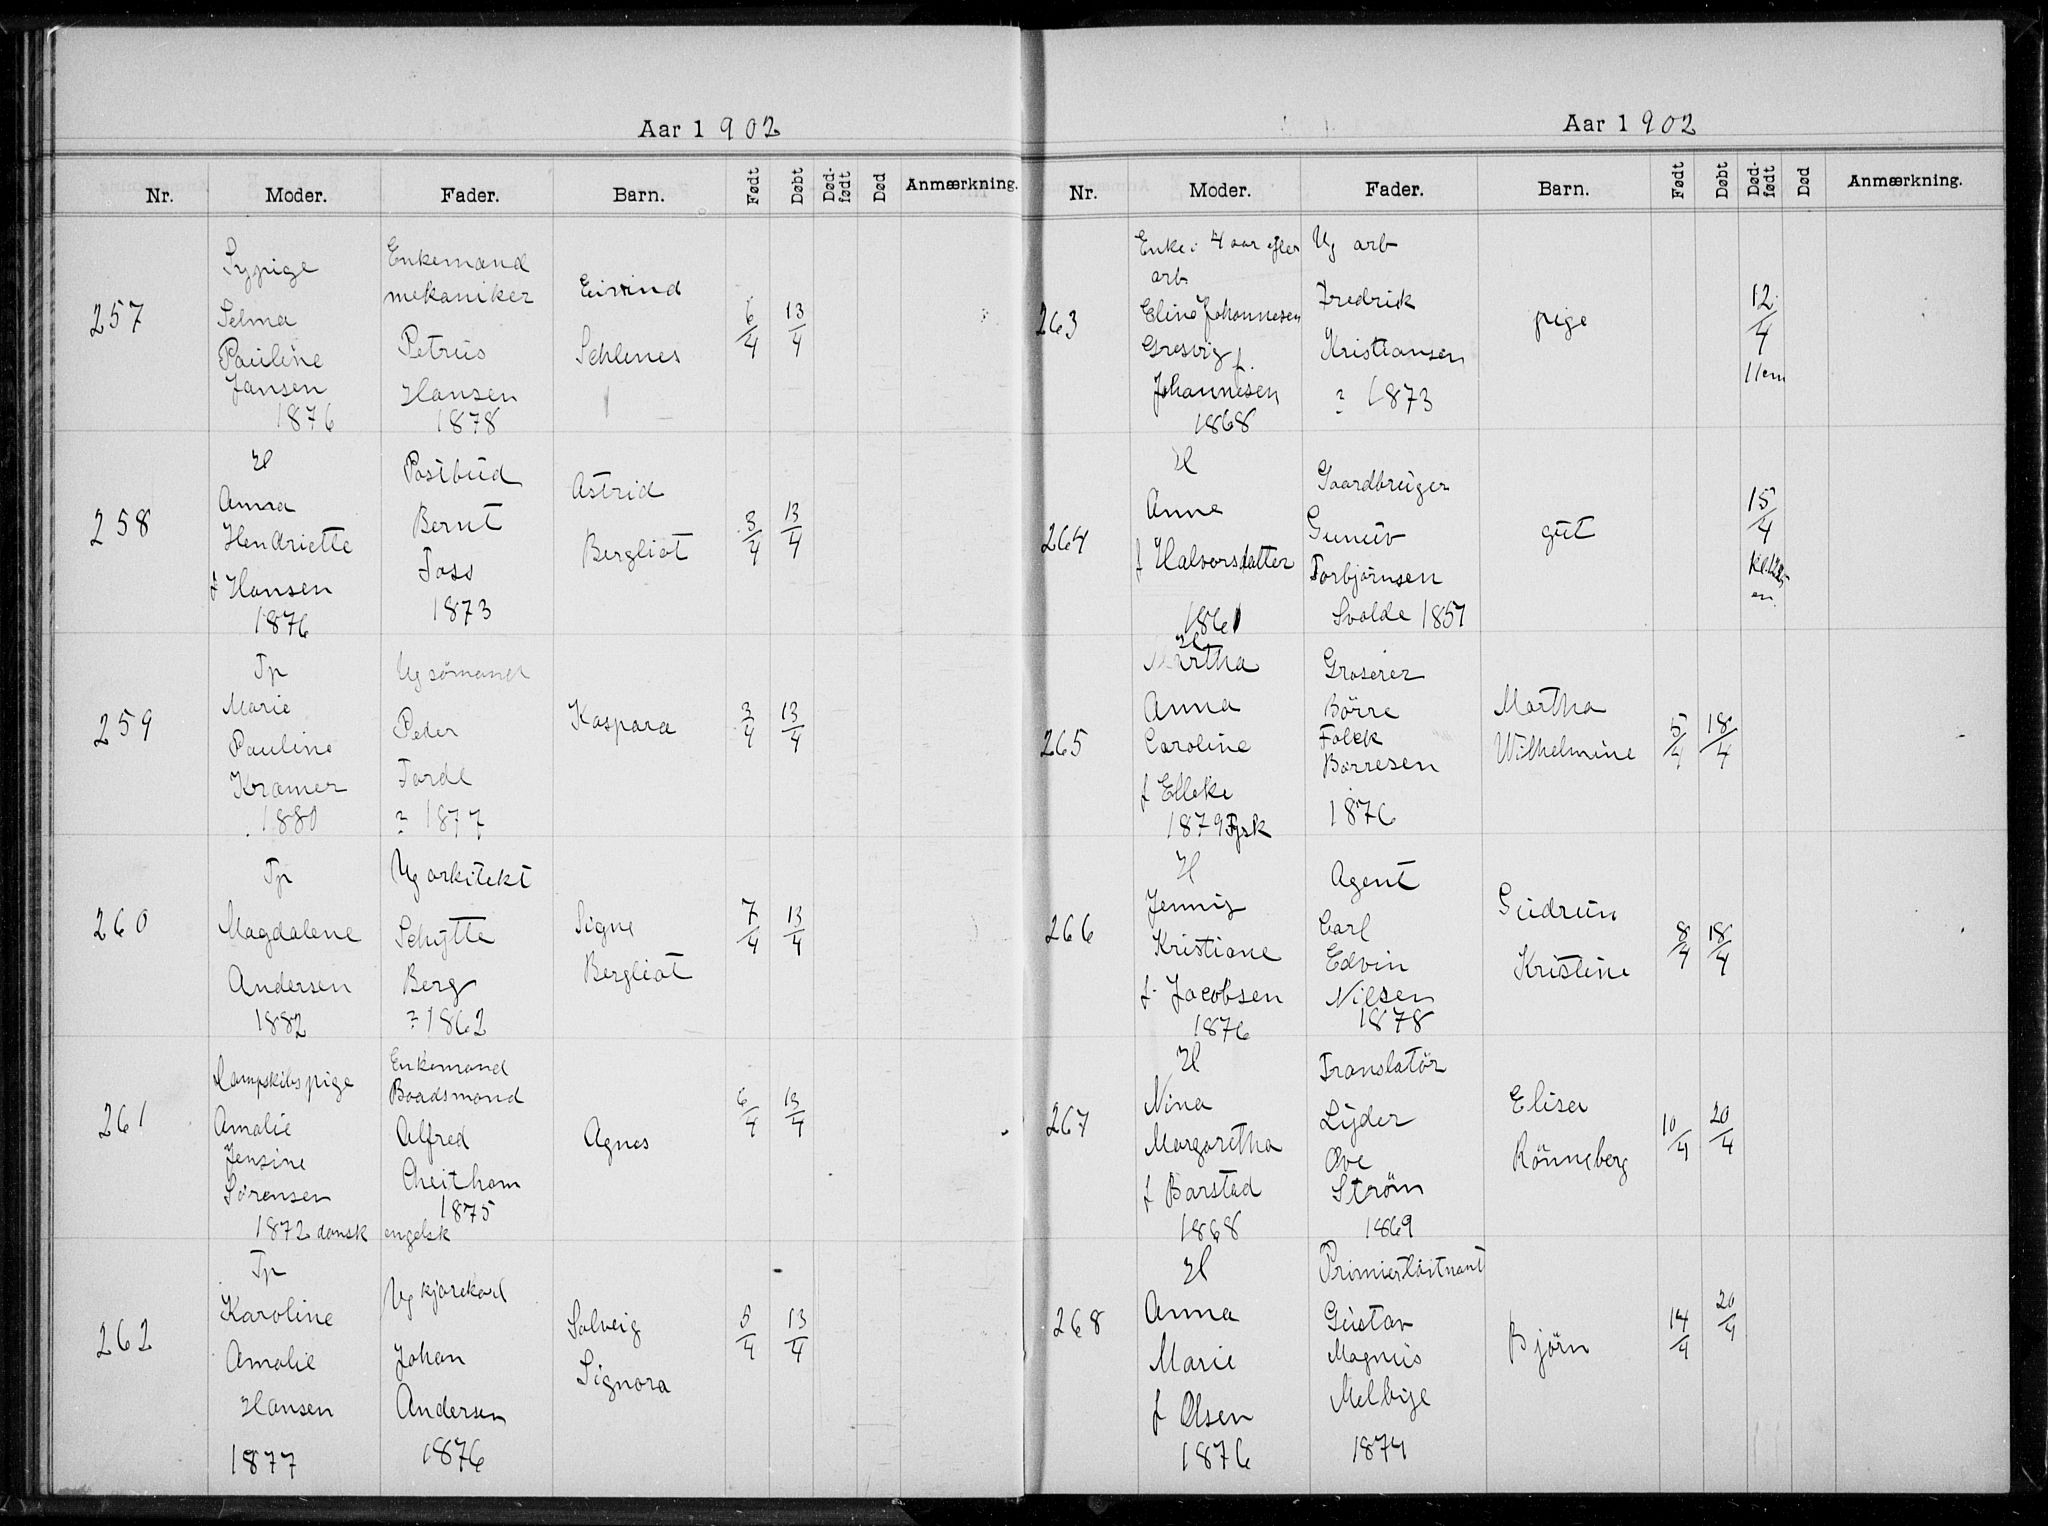 Aar 1902
Nr. Moder. Fader. Barn. Født Døbt Død-født Død Anmærkning.
257
Sypige
Selma
Pauline
Jansen
1876
Enkemand
mekaniker
Petrus
Hansen
1878
Eivind
Schlenes
6/4
13/4
258
H
Anna
Hendriette
f Hansen
1876
Postbud
Bernt
Foss
1873
Astrid
Bergliot
3/4
13/4
259
Tp
Marie
Pauline
Kramer
1880
Ug sømand
Peder
Torde
? 1877
Kaspara
3/4
13/4
260
Tp
Magdalene
Andersen
1882
Ug arkitekt
Schytte
Berg
? 1862
Signe
Bergliot
7/4
13/4
261
Dampskibspige
Amalie
Jensine
Sørensen
1872 dansk
Enkemand
Baadsmand
Alfred
Cheitham
1875
engelsk
Agnes
6/4
13/4
262
Tp
Karoline
Amalie
Hansen
1877
Ug kjørekarl
Johan
Andersen
1876
Solveig
Signora
5/4
13/4
Aar 1902
Nr. Moder. Fader. Barn. Født Døbt Død-født Død Anmærkning.
263
Enke i 4 aar efter
arb.
Eline Johannesen
Gresvig f.
Johannesen
1868
Ug arb
Fredrik
Kristiansen
? 1873
pige
12/4
11 em
264
H
Anne
f Halvorsdatter
1861
Gaardbruger
Gunuv
Torbjørnsen
Svalde 1857
gut
15/4
en.
265
H
Martha
Anna
Caroline
f Elleke
1879 Tysk
Groserer
Børre
Falck
Børresen
1876
Martha
Wilhelmine
5/4
18/4
266
H
Jenny
Kristiane
f. Jacobsen
1876
Agent
Carl
Edvin
Nilsen
1878
Gudrun
Kristine
8/4
18/4
267
H
Nina
Margaretha
f Barstad
1868
Translatør
Lyder
Ove
Strøm
1869
Elisa
Rønneberg
10/4
20/4
268
H
Anna
Marie
f Olsen
1876
Primierløitnant
Gustav
Magnus
Melbye
1874
Bjørn
14/4
20/4